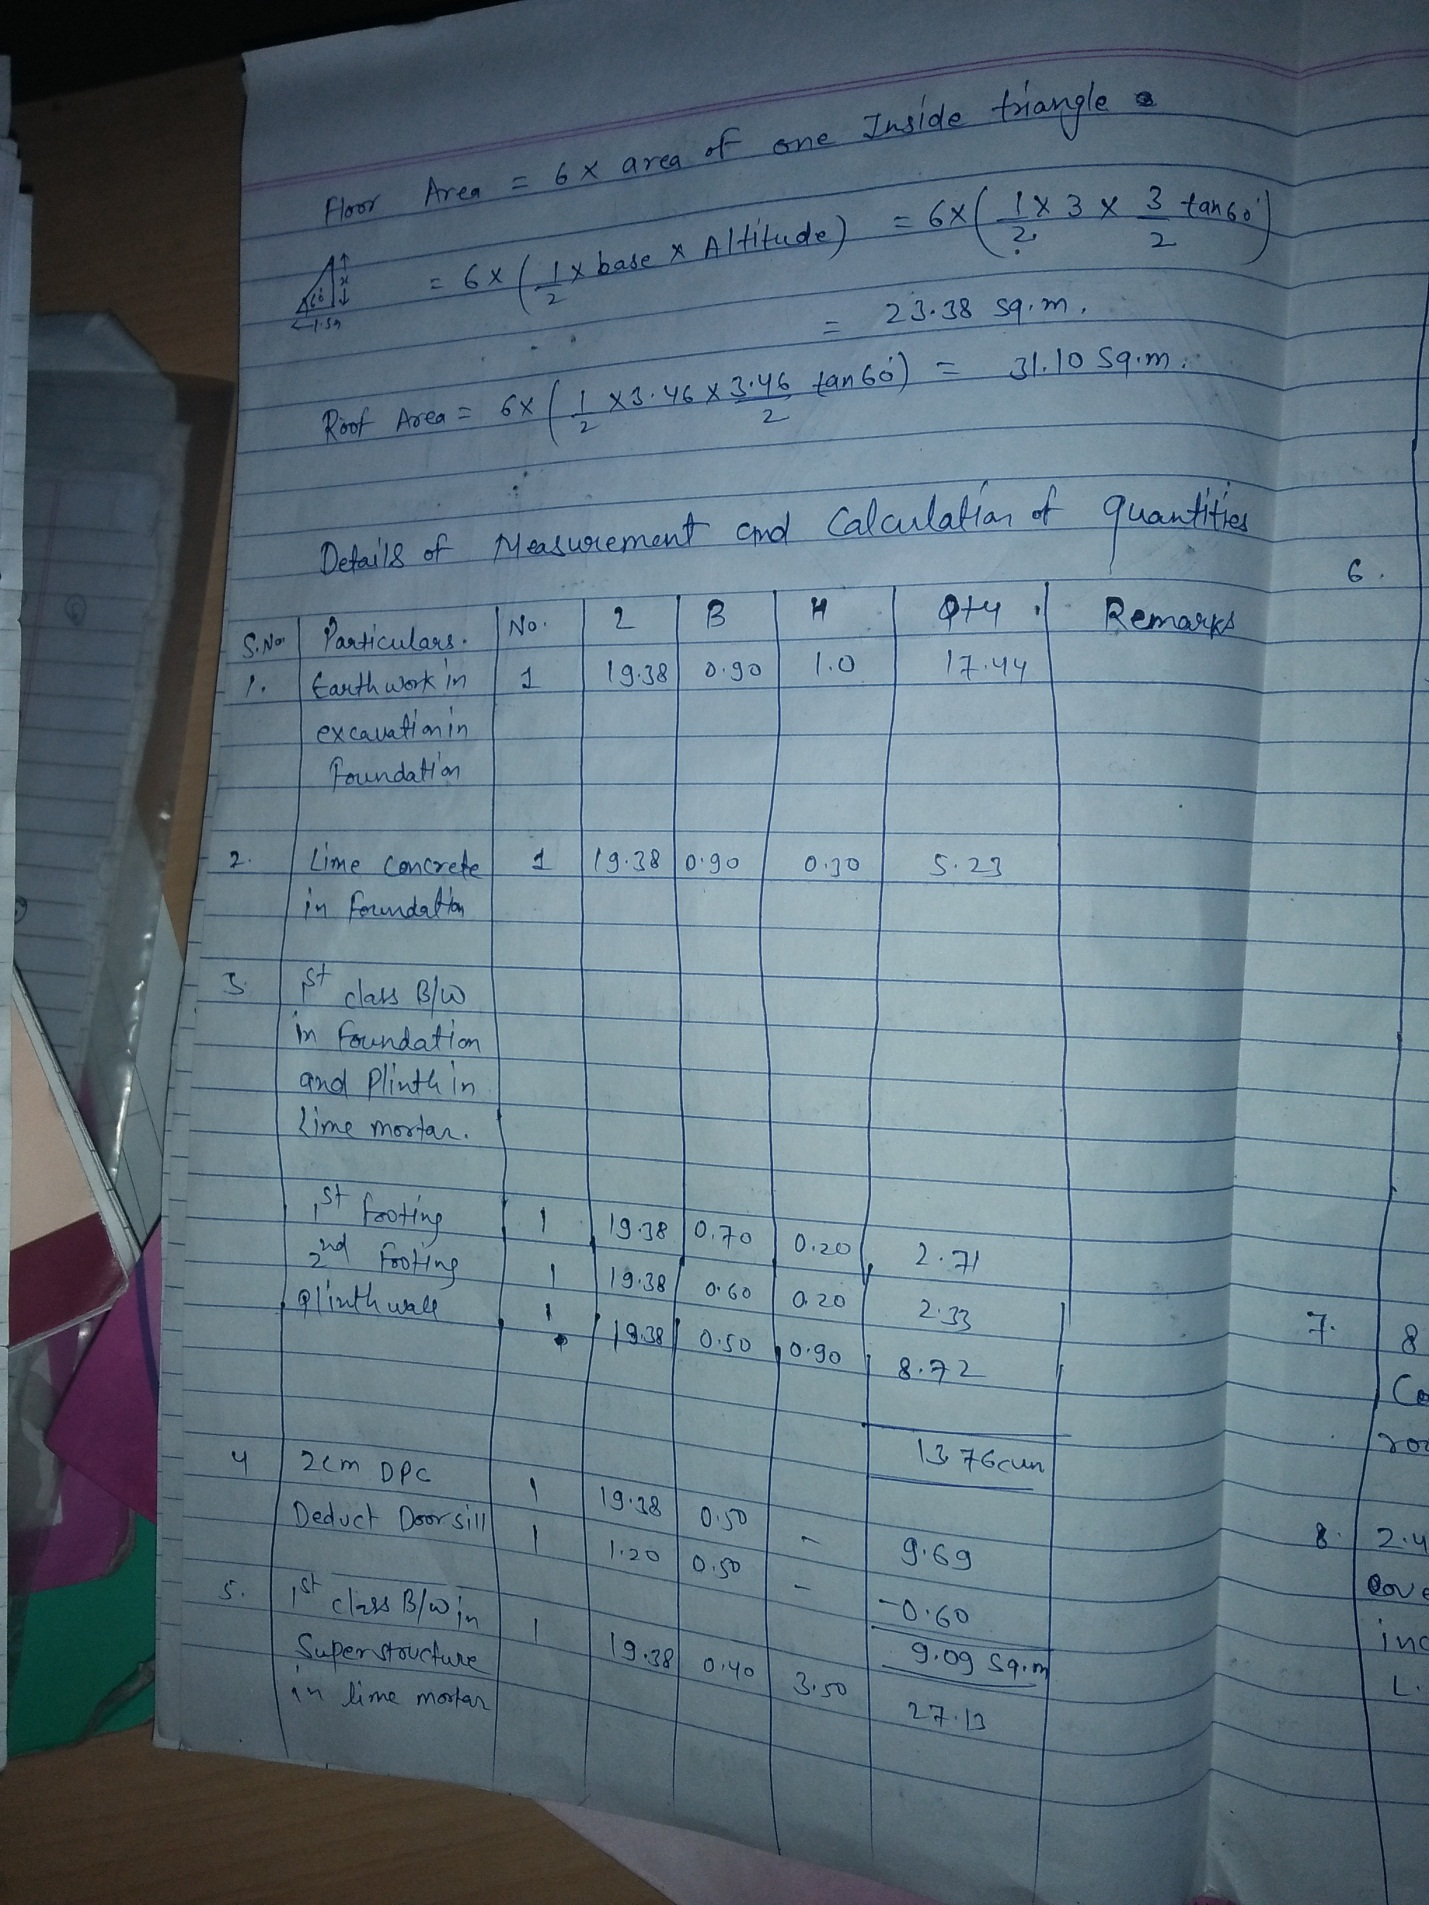 Floor Area = 6 x area of one Inside triangle
= 6 x ( 1/2 x base x Altitude ) = 6 x ( 1/2 x 3 x 3/2 tan 60° )
60°
x
1.5m
= 23.38 sq.m.
Roof Area = 6 x ( 1/2 x 3.46 x 3.46/2 tan 60° ) = 31.10 Sq.m.
Details of Measurement and Calculation of quantities
S.No Particulars. No. L B H Qty. Remarks
1. Earth work in 1 19.38 0.90 1.0 17.44
excavation in
foundation
2. Lime Concrete 1 19.38 0.90 0.30 5.23
in foundation
3. 1st class B/W
in foundation
and Plinth in
Lime mortar.
1st footing 1 19.38 0.70 0.20 2.71
2nd footing 1 19.38 0.60 0.20 2.33
Plinth wall 1 19.38 0.50 0.90 8.72
13.76 cum
4 2cm DPC 1 19.38 0.50 - 9.69
Deduct Door sill 1 1.20 0.50 - -0.60
9.09 sq.m
5. 1st class B/W in 1 19.38 0.40 3.50 27.13
Superstructure
in lime mortar
6.
7. 8
Co
roo
8. 2.4
Cove
inc
L.